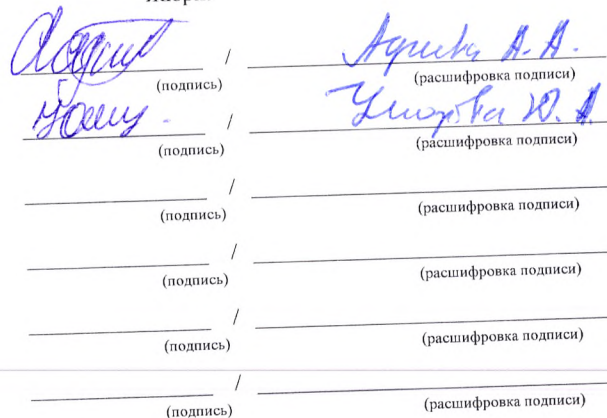 / А. А.
(подпись) (расшифровка подписи)
/ Ю. А.
(подпись) (расшифровка подписи)
/
(подпись) (расшифровка подписи)
/
(подпись) (расшифровка подписи)
/
(подпись) (расшифровка подписи)
/
(подпись) (расшифровка подписи)